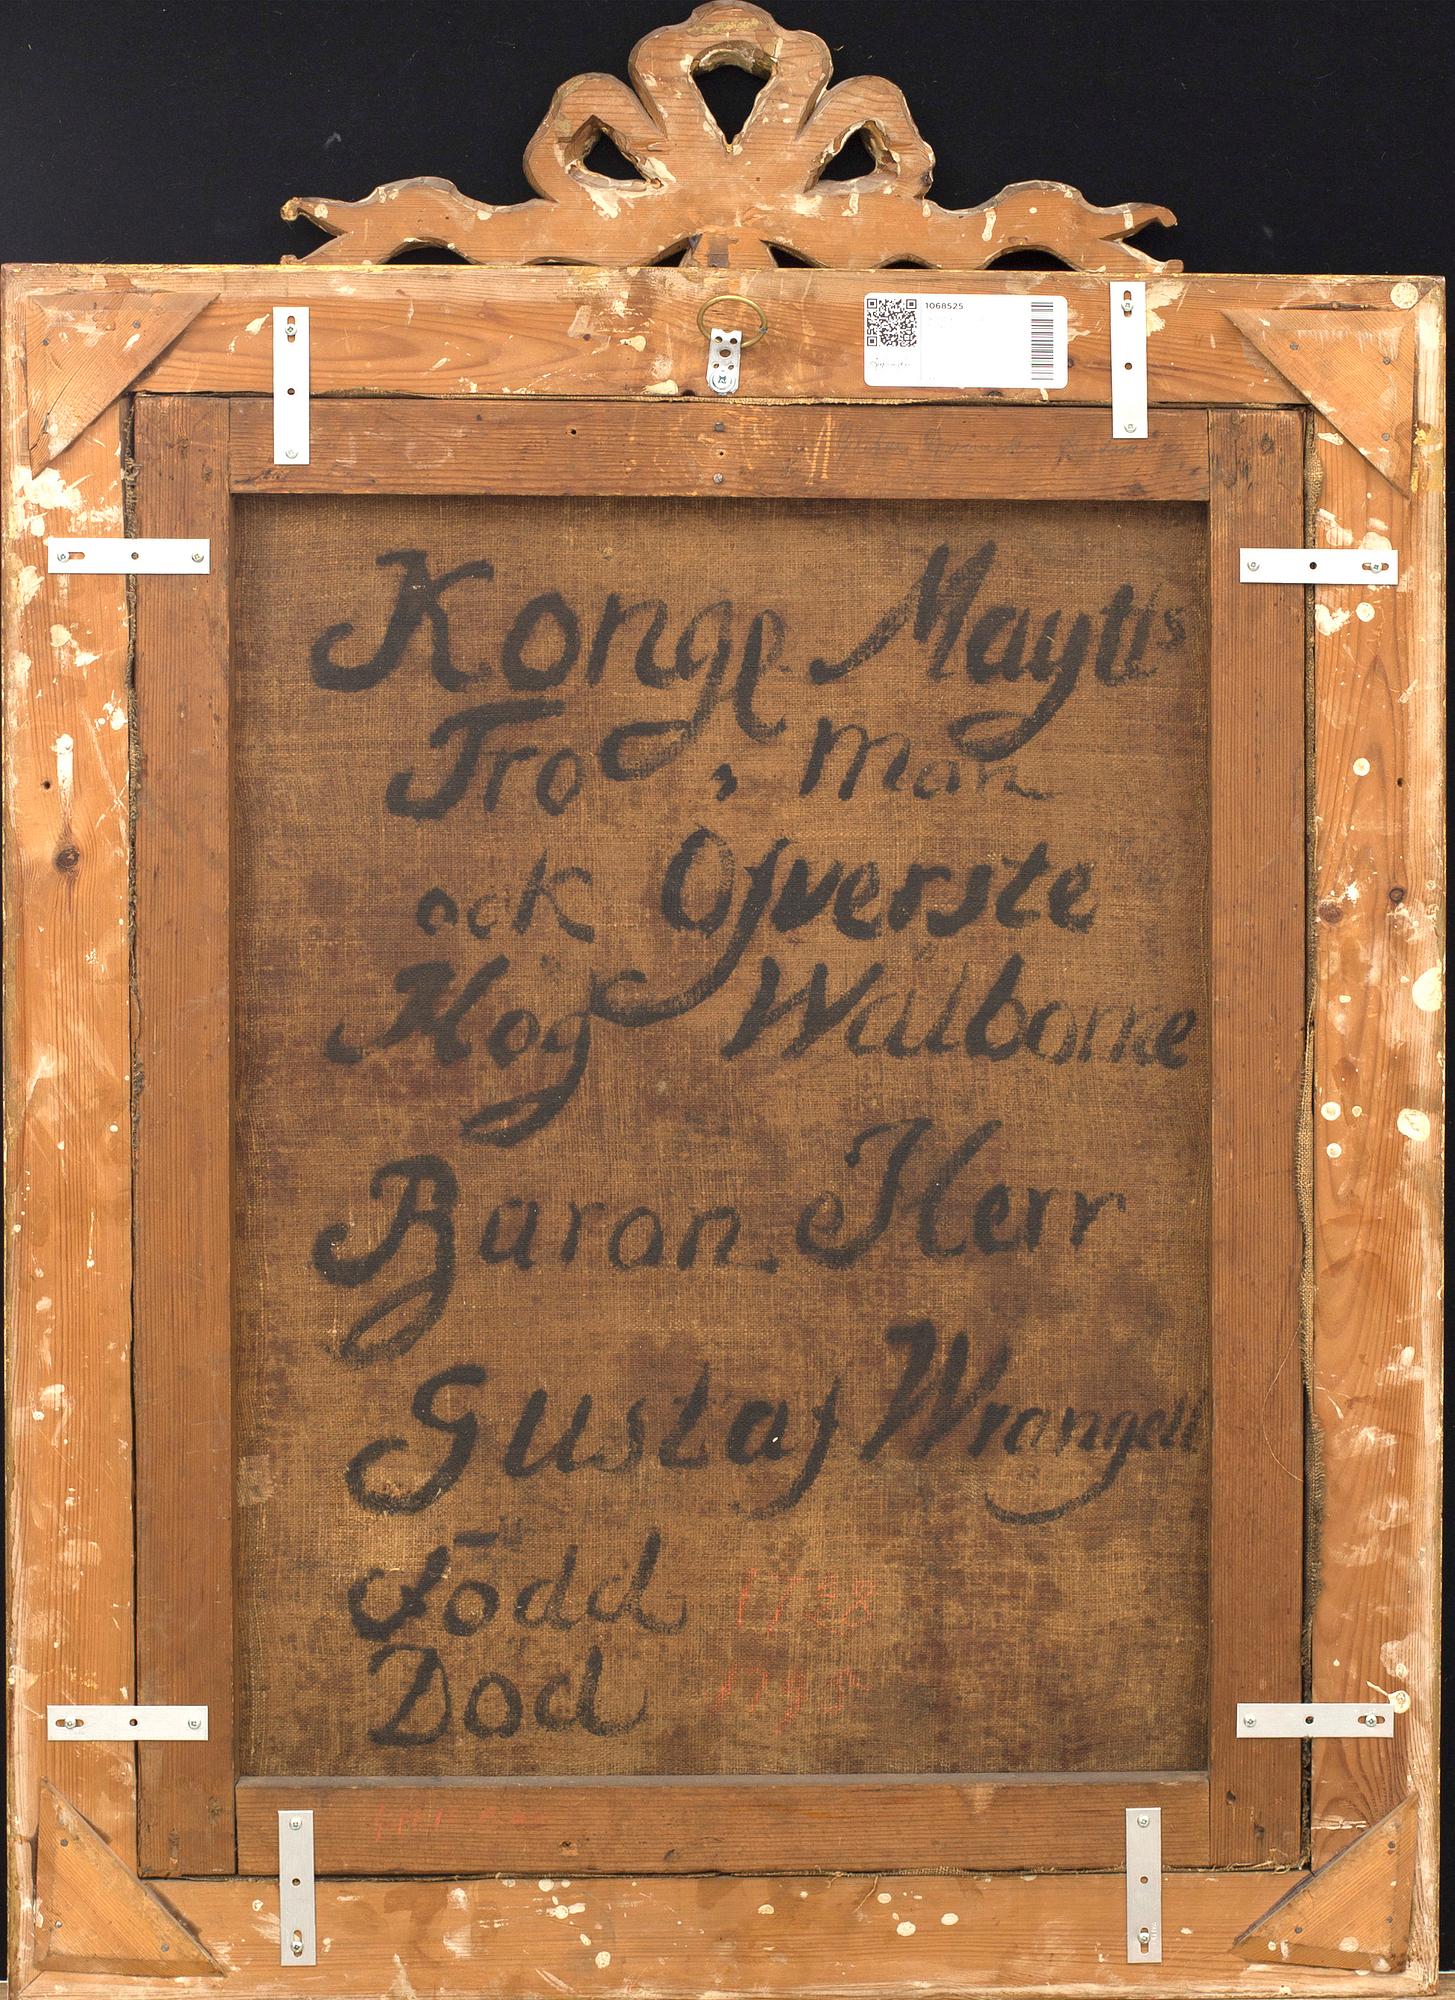 1068525
Kongl. Maytts
Tro, Man
ock Öfverste
Hög Wälborne
Baron Herr
Gustaf Wrangell
Född 1738
Död